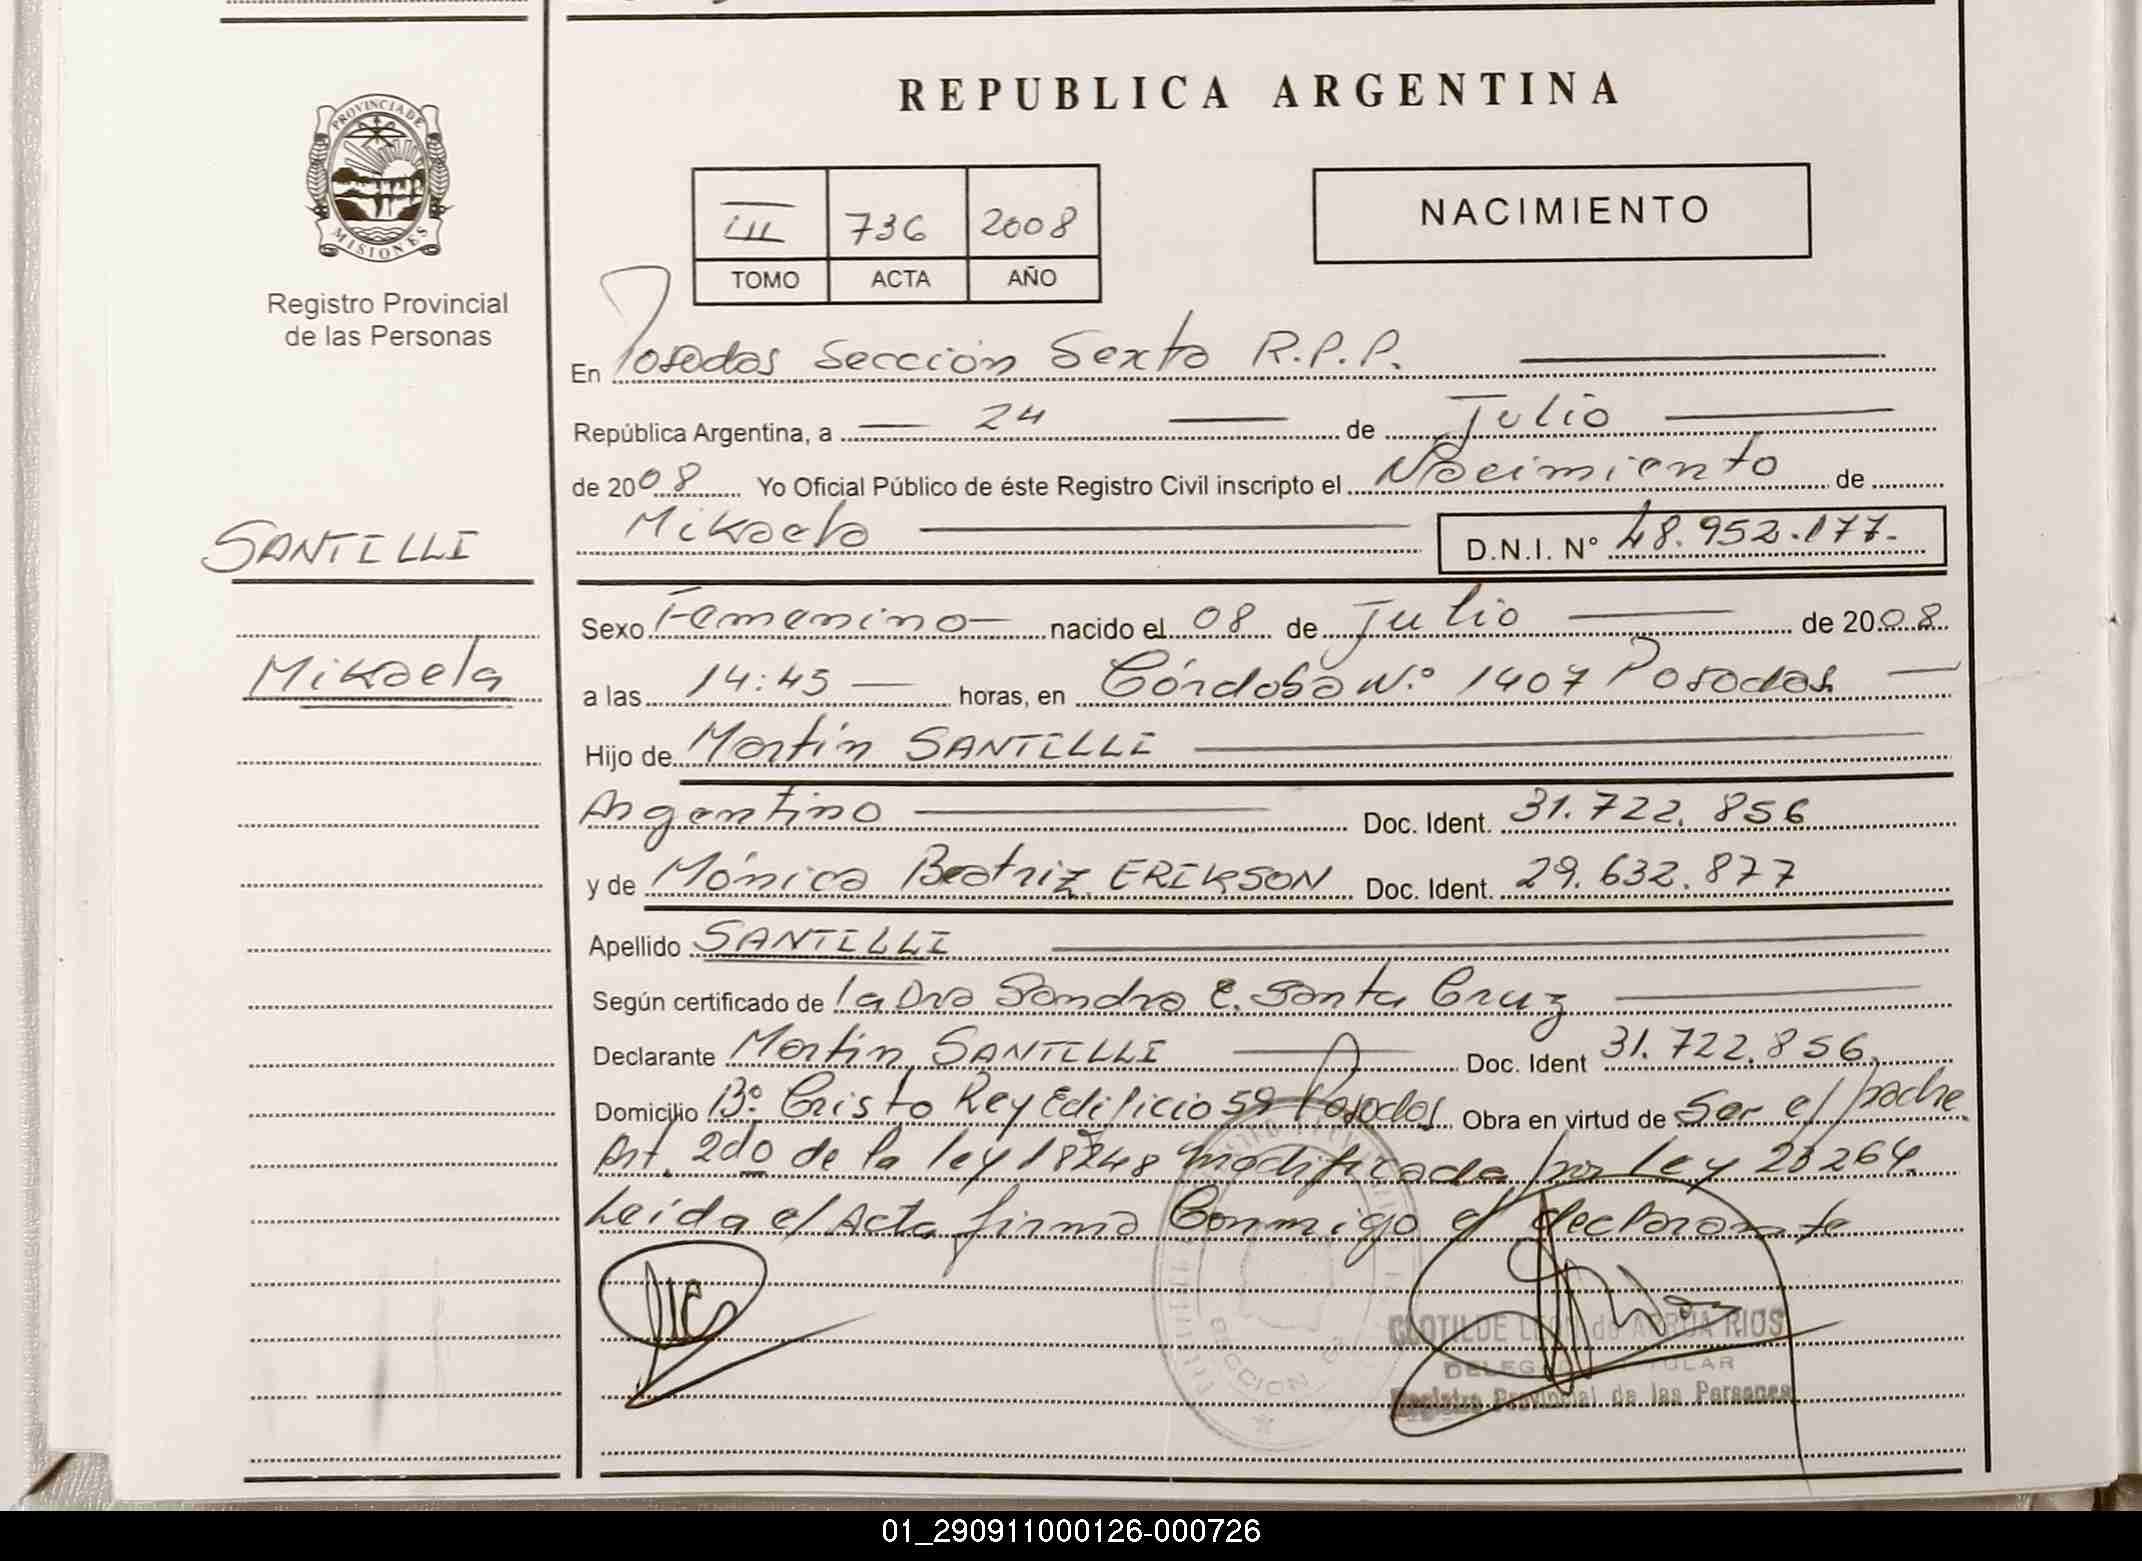 REPUBLICA ARGENTINA
PROVINCIA DE
MISIONES
Registro Provincial
de las Personas
III 736 2008
TOMO ACTA AÑO
NACIMIENTO
En Posadas Sección Sexta R.P.P.
República Argentina, a 24 de Julio
de 2008 Yo Oficial Público de éste Registro Civil inscripto el Nacimiento de
Mikaela D.N.I. Nº 48.952.177.-
SANTILLI
Mikaela
Sexo Femenino nacido el 08 de Julio de 2008
a las 14:45 horas, en Córdoba N.º 1407 Posadas
Hijo de Martín SANTILLI
Argentino Doc. Ident. 31.722.856
y de Mónica Beatriz ERIKSON Doc. Ident. 29.632.877
Apellido SANTILLI
Según certificado de la Dra Sandra E. Santa Cruz
Declarante Martín SANTILLI Doc. Ident 31.722.856.
Domicilio Bº. Cristo Rey Edificio 59 Posadas Obra en virtud de Ser el padre
Art. 2do de la ley 18248 modificada por Ley 23264.
Leída el Acta firma Conmigo el declarante
CLOTILDE LEON de ARRUA RIOS
DELEGADA TITULAR
Registro Provincial de las Personas
SECCION
01_290911000126-000726